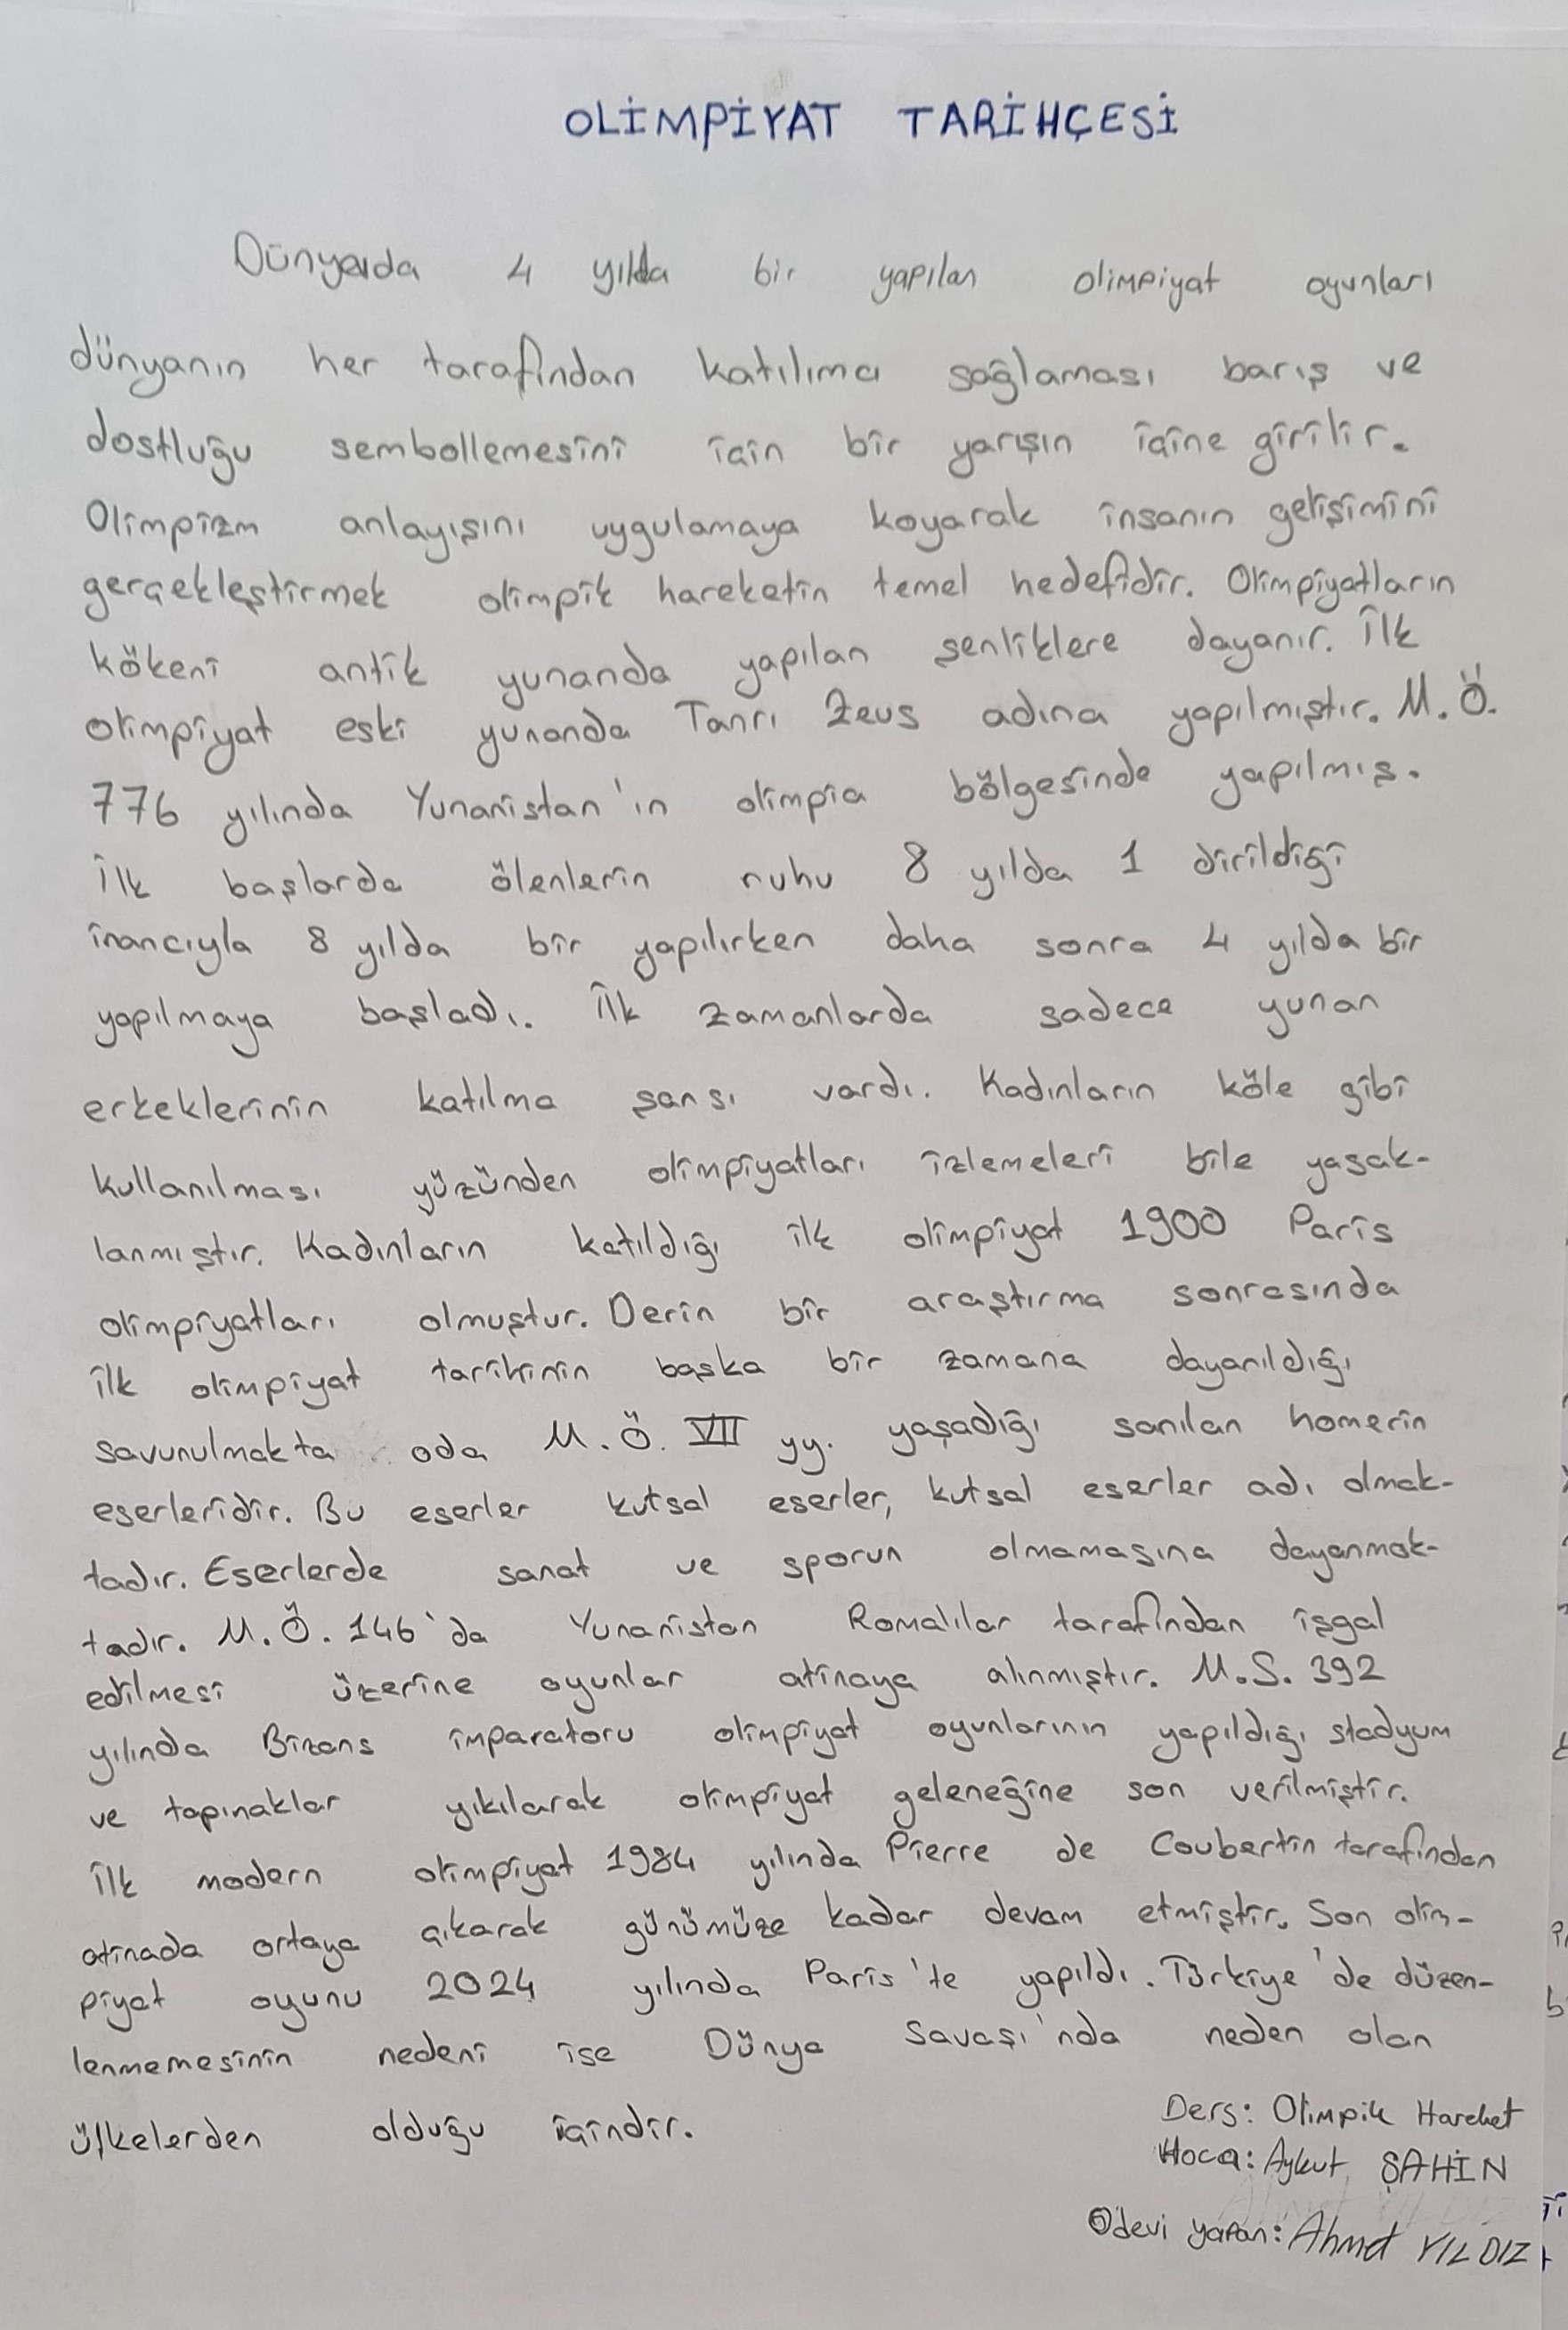 OLİMPİYAT TARİHÇESİ
Dünyada 4 yılda bir yapılan olimpiyat oyunları
dünyanın her tarafından katılımcı sağlaması barış ve
dostluğu sembollemesini için bir yarışın içine girilir.
Olimpizm anlayışını uygulamaya koyarak insanın gelişimini
gerçekleştirmek olimpik hareketin temel hedefidir. Olimpiyatların
kökeni antik yunanda yapılan şenliklere dayanır. İlk
olimpiyat eski yunanda Tanrı Zeus adına yapılmıştır. M.Ö.
776 yılında Yunanistan'ın olimpia bölgesinde yapılmış.
İlk başlarda ölenlerin ruhu 8 yılda 1 dirildiği
inancıyla 8 yılda bir yapılırken daha sonra 4 yılda bir
yapılmaya başladı. İlk zamanlarda sadece yunan
erkeklerinin katılma şansı vardı. Kadınların köle gibi
kullanılması yüzünden olimpiyatları izlemeleri bile yasak-
lanmıştır. Kadınların katıldığı ilk olimpiyat 1900 Paris
olimpiyatları olmuştur. Derin bir araştırma sonrasında
ilk olimpiyat tarihinin başka bir zamana dayanıldığı
savunulmakta oda M.Ö. VII yy. yaşadığı sanılan homerin
eserleridir. Bu eserler kutsal eserler, kutsal eserler adı olmak-
tadır. Eserlerde sanat ve sporun olmamasına dayanmak-
tadır. M.Ö. 146'da Yunanistan Romalılar tarafından işgal
edilmesi üzerine oyunlar atinaya alınmıştır. M.S. 392
yılında Bizans imparatoru olimpiyat oyunlarının yapıldığı stadyum
ve tapınaklar yıkılarak olimpiyat geleneğine son verilmiştir.
İlk modern olimpiyat 1984 yılında Pierre de Coubertin tarafından
atinada ortaya çıkarak günümüze kadar devam etmiştir. Son olim-
piyat oyunu 2024 yılında Paris'te yapıldı. Türkiye'de düzen-
lenmemesinin nedeni ise Dünya Savaşı'nda neden olan
ülkelerden olduğu içindir.
Ders: Olimpik Hareket
Hoca: Aykut ŞAHİN
Ödevi yapan: Ahmet YILDIZ